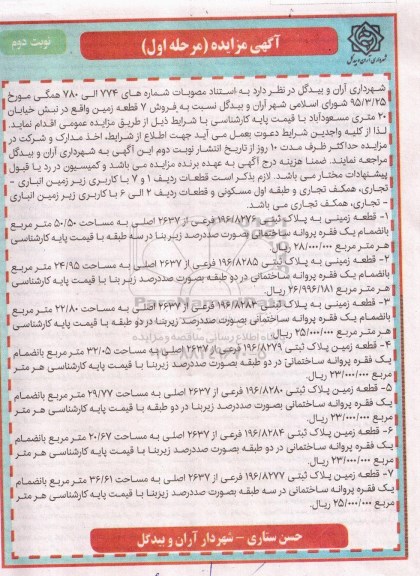 آگهی مزایده (مرحله اول)
نوبت دوم
شهرداری آران و بیدگل
شهرداری آران و بیدگل در نظر دارد به استناد مصوبات شماره های ۷۷۴ الی ۷۸۰ همگی مورخ
۹۵/۳/۲۵ شورای اسلامی شهر آران و بیدگل نسبت به فروش ۷ قطعه زمین واقع در نبش خیابان
۲۰ متری مسعودآباد با قیمت پایه کارشناسی با شرایط ذیل از طریق مزایده عمومی اقدام نماید.
لذا از کلیه واجدین شرایط دعوت بعمل می آید جهت اطلاع از شرایط، اخذ مدارک و شرکت در
مزایده حداکثر ظرف مدت ۱۰ روز از تاریخ انتشار نوبت دوم این آگهی به شهرداری آران و بیدگل
مراجعه نمایند. ضمنا هزینه درج آگهی به عهده برنده مزایده می باشد و کمیسیون در رد یا قبول
پیشنهادات مختار می باشد. لازم بذکر است قطعات ردیف ۱ و ۷ با کاربری زیر زمین انباری -
تجاری، همکف تجاری و طبقه اول مسکونی و قطعات ردیف ۲ الی ۶ با کاربری زیر زمین انباری
- تجاری، همکف تجاری می باشد.
۱- قطعه زمینی به پلاک ثبتی ۱۹۶/۸۲۷۶ فرعی از ۲۶۳۷ اصلی به مساحت ۵۰/۵۰ متر مربع
بانضمام یک فقره پروانه ساختمانی بصورت صددرصد زیربنا در سه طبقه با قیمت پایه کارشناسی
هر متر مربع ۲۸/۰۰۰/۰۰۰ ریال.
۲- قطعه زمینی به پلاک ثبتی ۱۹۶/۸۲۸۵ فرعی از ۲۶۳۷ اصلی به مساحت ۲۴/۹۵ متر مربع
بانضمام یک فقره پروانه ساختمانی در دو طبقه بصورت صددرصد زیر بنا با قیمت پایه کارشناسی
هر متر مربع ۲۶/۹۹۶/۱۸۱ ریال.
۳- قطعه زمینی به پلاک ثبتی ۱۹۶/۸۲۸۳ فرعی از ۲۶۳۷ اصلی به مساحت ۲۲/۸۰ متر مربع
بانضمام یک فقره پروانه ساختمانی بصورت صددرصد زیربنا در دو طبقه با قیمت پایه کارشناسی
هر متر مربع ۲۵/۰۰۰/۰۰۰ ریال.
۴- قطعه زمین پلاک ثبتی ۱۹۶/۸۲۷۹ فرعی از ۲۶۳۷ اصلی به مساحت ۳۲/۰۵ متر مربع بانضمام
یک فقره پروانه ساختمانی در دو طبقه بصورت صددرصد زیربنا با قیمت پایه کارشناسی هر متر
مربع ۲۳/۰۰۰/۰۰۰ ریال.
۵- قطعه زمین پلاک ثبتی ۱۹۶/۸۲۸۰ فرعی از ۲۶۳۷ اصلی به مساحت ۲۹/۷۷ متر مربع بانضمام
یک فقره پروانه ساختمانی بصورت صددرصد زیربنا در دو طبقه با قیمت پایه کارشناسی هر متر
مربع ۲۳/۰۰۰/۰۰۰ ریال.
۶- قطعه زمین پلاک ثبتی ۱۹۶/۸۲۸۴ فرعی از ۲۶۳۷ اصلی به مساحت ۲۰/۶۷ متر مربع بانضمام
یک فقره پروانه ساختمانی در دو طبقه بصورت صددرصد زیربنا با قیمت پایه کارشناسی هر متر
مربع ۲۳/۰۰۰/۰۰۰ ریال.
۷- قطعه زمین پلاک ثبتی ۱۹۶/۸۲۷۷ فرعی از ۲۶۳۷ اصلی به مساحت ۳۶/۶۱ متر مربع بانضمام
یک فقره پروانه ساختمانی در سه طبقه بصورت صددرصد زیربنا با قیمت پایه کارشناسی هر متر
مربع ۲۵/۰۰۰/۰۰۰ ریال.
حسن ستاری - شهردار آران و بیدگل